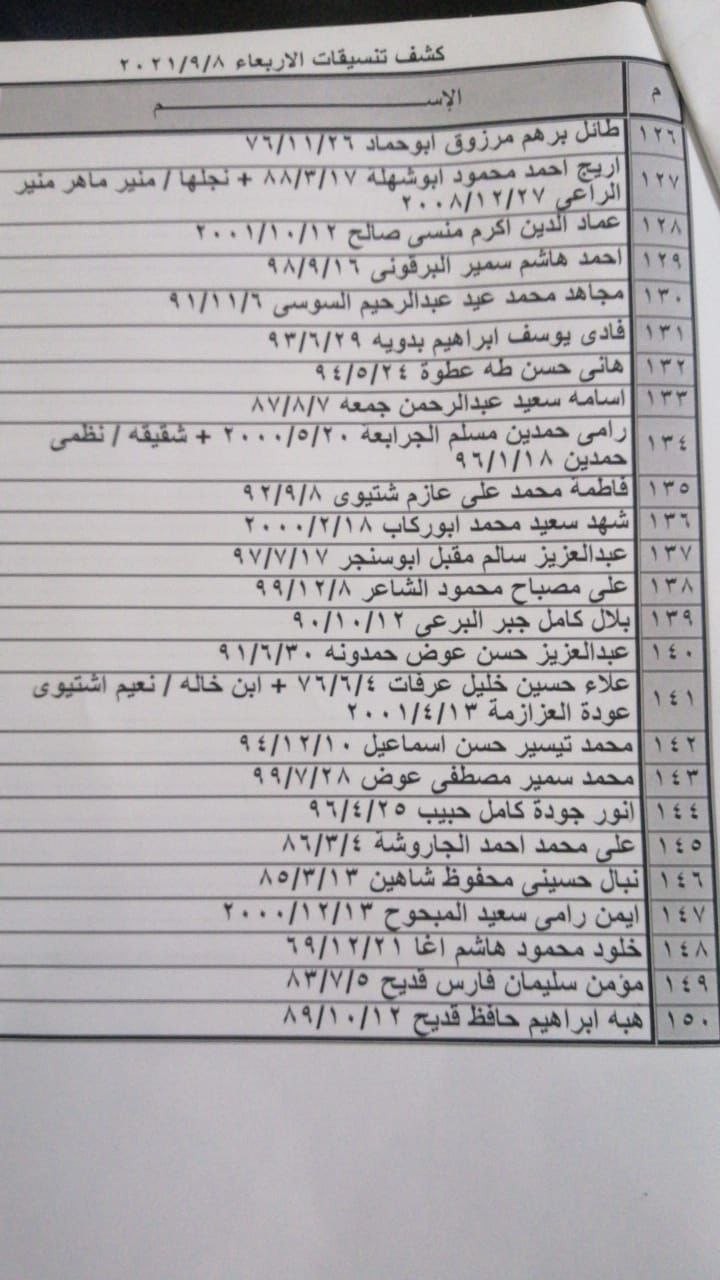 كشف تنسيقات الاربعاء ٢٠٢١/٩/٨
م الإســــــــــم
١٢٦ طائل برهم مرزوق ابوحماد ٧٦/١١/٢٦
١٢٧ اريج احمد محمود ابوشهلة ٨٨/٣/١٧ + نجلها / منير ماهر منير
الراعي ٢٠٠٨/١٢/٢٧
١٢٨ عماد الدين اكرم منسى صالح ٢٠٠١/١٠/١٢
١٢٩ احمد هاشم سمير البرقونى ٩٨/٩/١٦
١٣٠ مجاهد محمد عيد عبدالرحيم السوسى ٩١/١١/٦
١٣١ فادى يوسف ابراهيم بدويه ٩٣/٦/٢٩
١٣٢ هانى حسن طه عطوة ٩٤/٥/٢٤
١٣٣ اسامه سعيد عبدالرحمن جمعه ٨٧/٨/٧
١٣٤ رامى حمدين مسلم الجرابعة ٢٠٠٠/٥/٢٠ + شقيقه / نظمى
حمدين ٩٦/١/١٨
١٣٥ فاطمة محمد على عازم شتيوى ٩٢/٩/٨
١٣٦ شهد سعيد محمد ابوركاب ٢٠٠٠/٢/١٨
١٣٧ عبدالعزيز سالم مقبل ابوسنجر ٩٧/٧/١٧
١٣٨ على مصباح محمود الشاعر ٩٩/١٢/٨
١٣٩ بلال كامل جبر البرعى ٩٠/١٠/١٢
١٤٠ عبدالعزيز حسن عوض حمدونه ٩١/٦/٣٠
١٤١ علاء حسين خليل عرفات ٧٦/٦/٤ + ابن خاله / نعيم اشتيوى
عودة العزازمة ٢٠٠١/٤/١٣
١٤٢ محمد تيسير حسن اسماعيل ٩٤/١٢/١٠
١٤٣ محمد سمير مصطفى عوض ٩٩/٧/٢٨
١٤٤ انور جودة كامل حبيب ٩٦/٤/٢٥
١٤٥ على محمد احمد الجاروشة ٨٦/٣/٤
١٤٦ نبال حسينى محفوظ شاهين ٨٥/٣/١٣
١٤٧ ايمن رامى سعيد المبحوح ٢٠٠٠/١٢/١٣
١٤٨ خلود محمود هاشم اغا ٦٩/١٢/٢١
١٤٩ مؤمن سليمان فارس قديح ٨٣/٧/٥
١٥٠ هبه ابراهيم حافظ قديح ٨٩/١٠/١٢